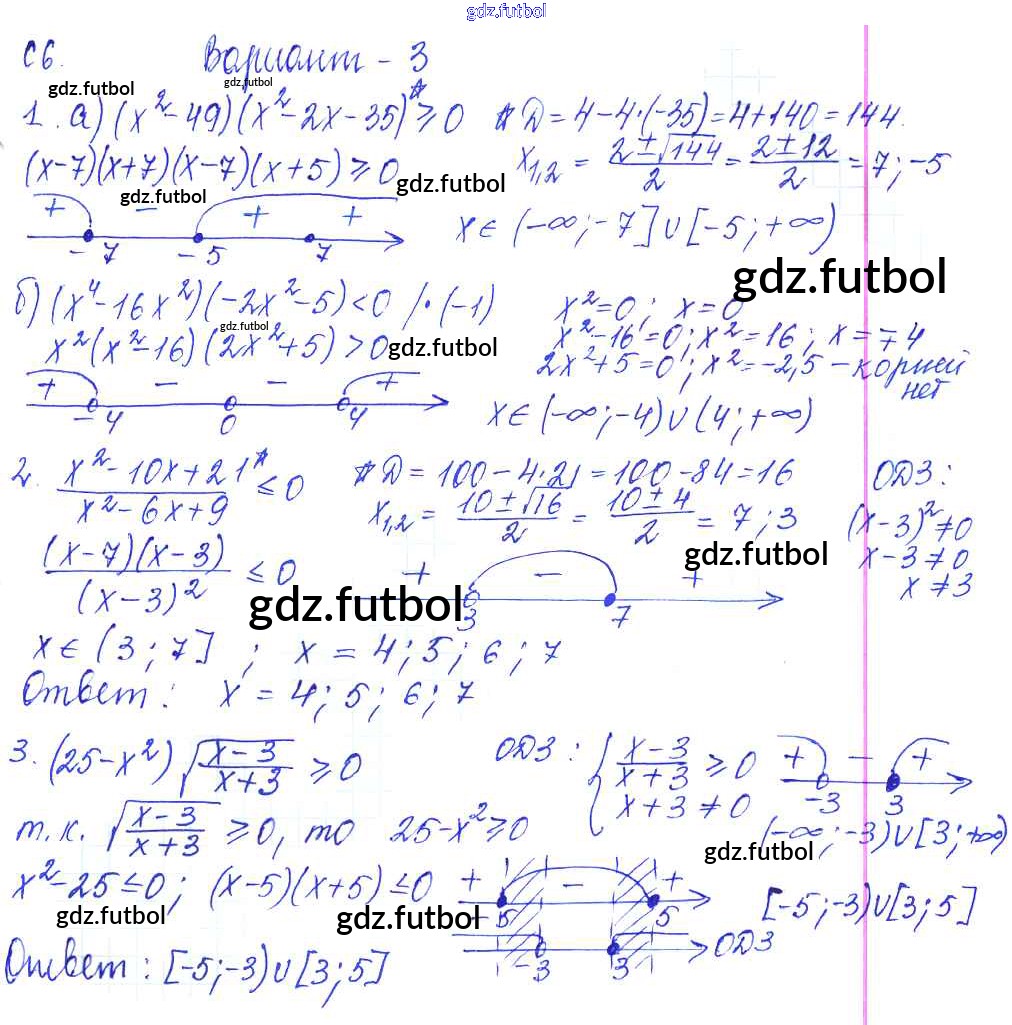 gdz.futbol
С6. Вариант - 3
gdz.futbol gdz.futbol
1. а) (x² - 49)(x² - 2x - 35)* ≥ 0 * D = 4 - 4·(-35) = 4 + 140 = 144.
(x-7)(x+7)(x-7)(x+5) ≥ 0 x₁,₂ = (2 ± √144)/2 = (2 ± 12)/2 = 7; -5
gdz.futbol gdz.futbol
+ - + +
-7 -5 7 x ∈ (-∞; -7] ∪ [-5; +∞)
gdz.futbol
б) (x⁴ - 16x²)(-2x² - 5) < 0 /·(-1) x² = 0; x = 0
gdz.futbol gdz.futbol
x²(x² - 16)(2x² + 5) > 0 x² - 16 = 0; x² = 16; x = ∓4
2x² + 5 = 0; x² = -2,5 - корней нет
+ - - +
-4 0 4 x ∈ (-∞; -4) ∪ (4; +∞)
2. (x² - 10x + 21*)/(x² - 6x + 9) ≤ 0 * D = 100 - 4·21 = 100 - 84 = 16 ОДЗ:
x₁,₂ = (10 ± √16)/2 = (10 ± 4)/2 = 7; 3 (x-3)² ≠ 0
gdz.futbol x - 3 ≠ 0
((x-7)(x-3))/((x-3)²) ≤ 0 + - + x ≠ 3
gdz.futbol 3 7
x ∈ (3; 7]; x = 4; 5; 6; 7
Ответ: x = 4; 5; 6; 7
3. (25 - x²)√((x-3)/(x+3)) ≥ 0 ОДЗ: { (x-3)/(x+3) ≥ 0 + - +
x + 3 ≠ 0 -3 3
т.к. √((x-3)/(x+3)) ≥ 0, то 25 - x² ≥ 0 (-∞; -3) ∪ [3; +∞)
gdz.futbol
x² - 25 ≤ 0; (x-5)(x+5) ≤ 0 + - + [-5; -3) ∪ [3; 5]
gdz.futbol gdz.futbol -5 5
-3 3 ОДЗ
Ответ: [-5; -3) ∪ [3; 5]